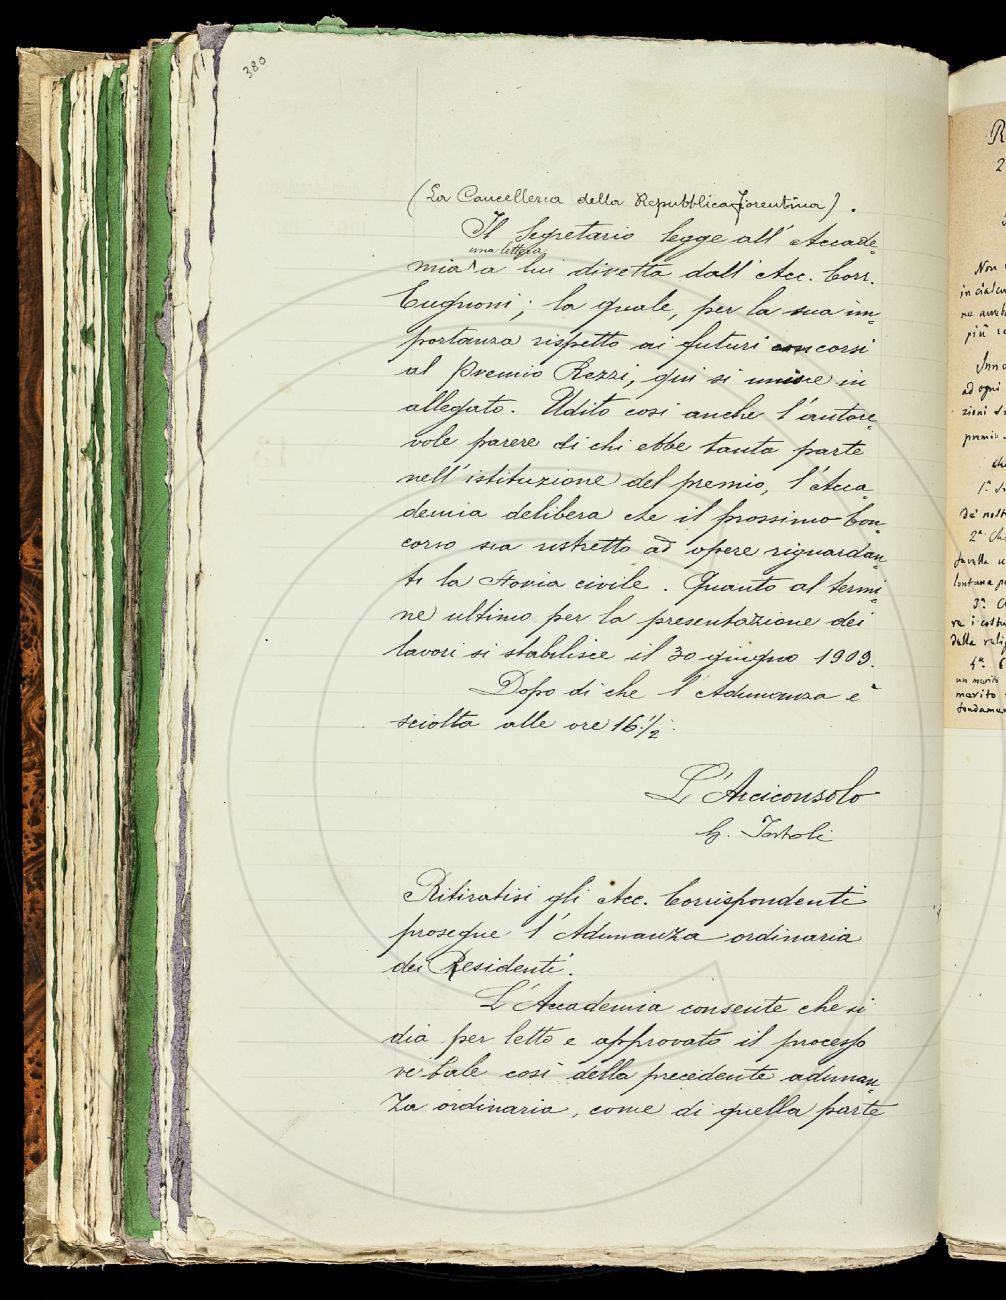 380
(La Cancelleria della Repubblica Fiorentina).
Il Segretario legge all' Accade-
una lettera
mia a lui diretta dall' Acc. Corr.
Cugnoni; la quale, per la sua im-
portanza rispetto ai futuri concorsi
al Premio Rezzi, qui si unisce in
allegato. Udito così anche l'autore-
vole parere di chi ebbe tanta parte
nell' istituzione del premio, l'Acca-
demia delibera che il prossimo Con-
corso sia ristretto ad opere riguardan-
ti la Storia civile. Quanto al termi-
ne ultimo per la presentazione dei
lavori si stabilisce il 30 giugno 1909.
Dopo di che l'Adunanza è
sciolta alle ore 16 1/2.
L'Arciconsolo
G. Tortoli
Ritiratisi gli Acc. Corrispondenti
prosegue l'Adunanza ordinaria
dei Residenti.
L'Accademia consente che si
dia per letto e approvato il processo
verbale così della precedente adunan-
za ordinaria, come di quella parte
Non
in cia
più
ad ogni
zioni
premio
1.°
de' nost
2.ª
favella
lontana p
3.ª
re i costu
della relig
4.ª
un merito
merito
fondamen